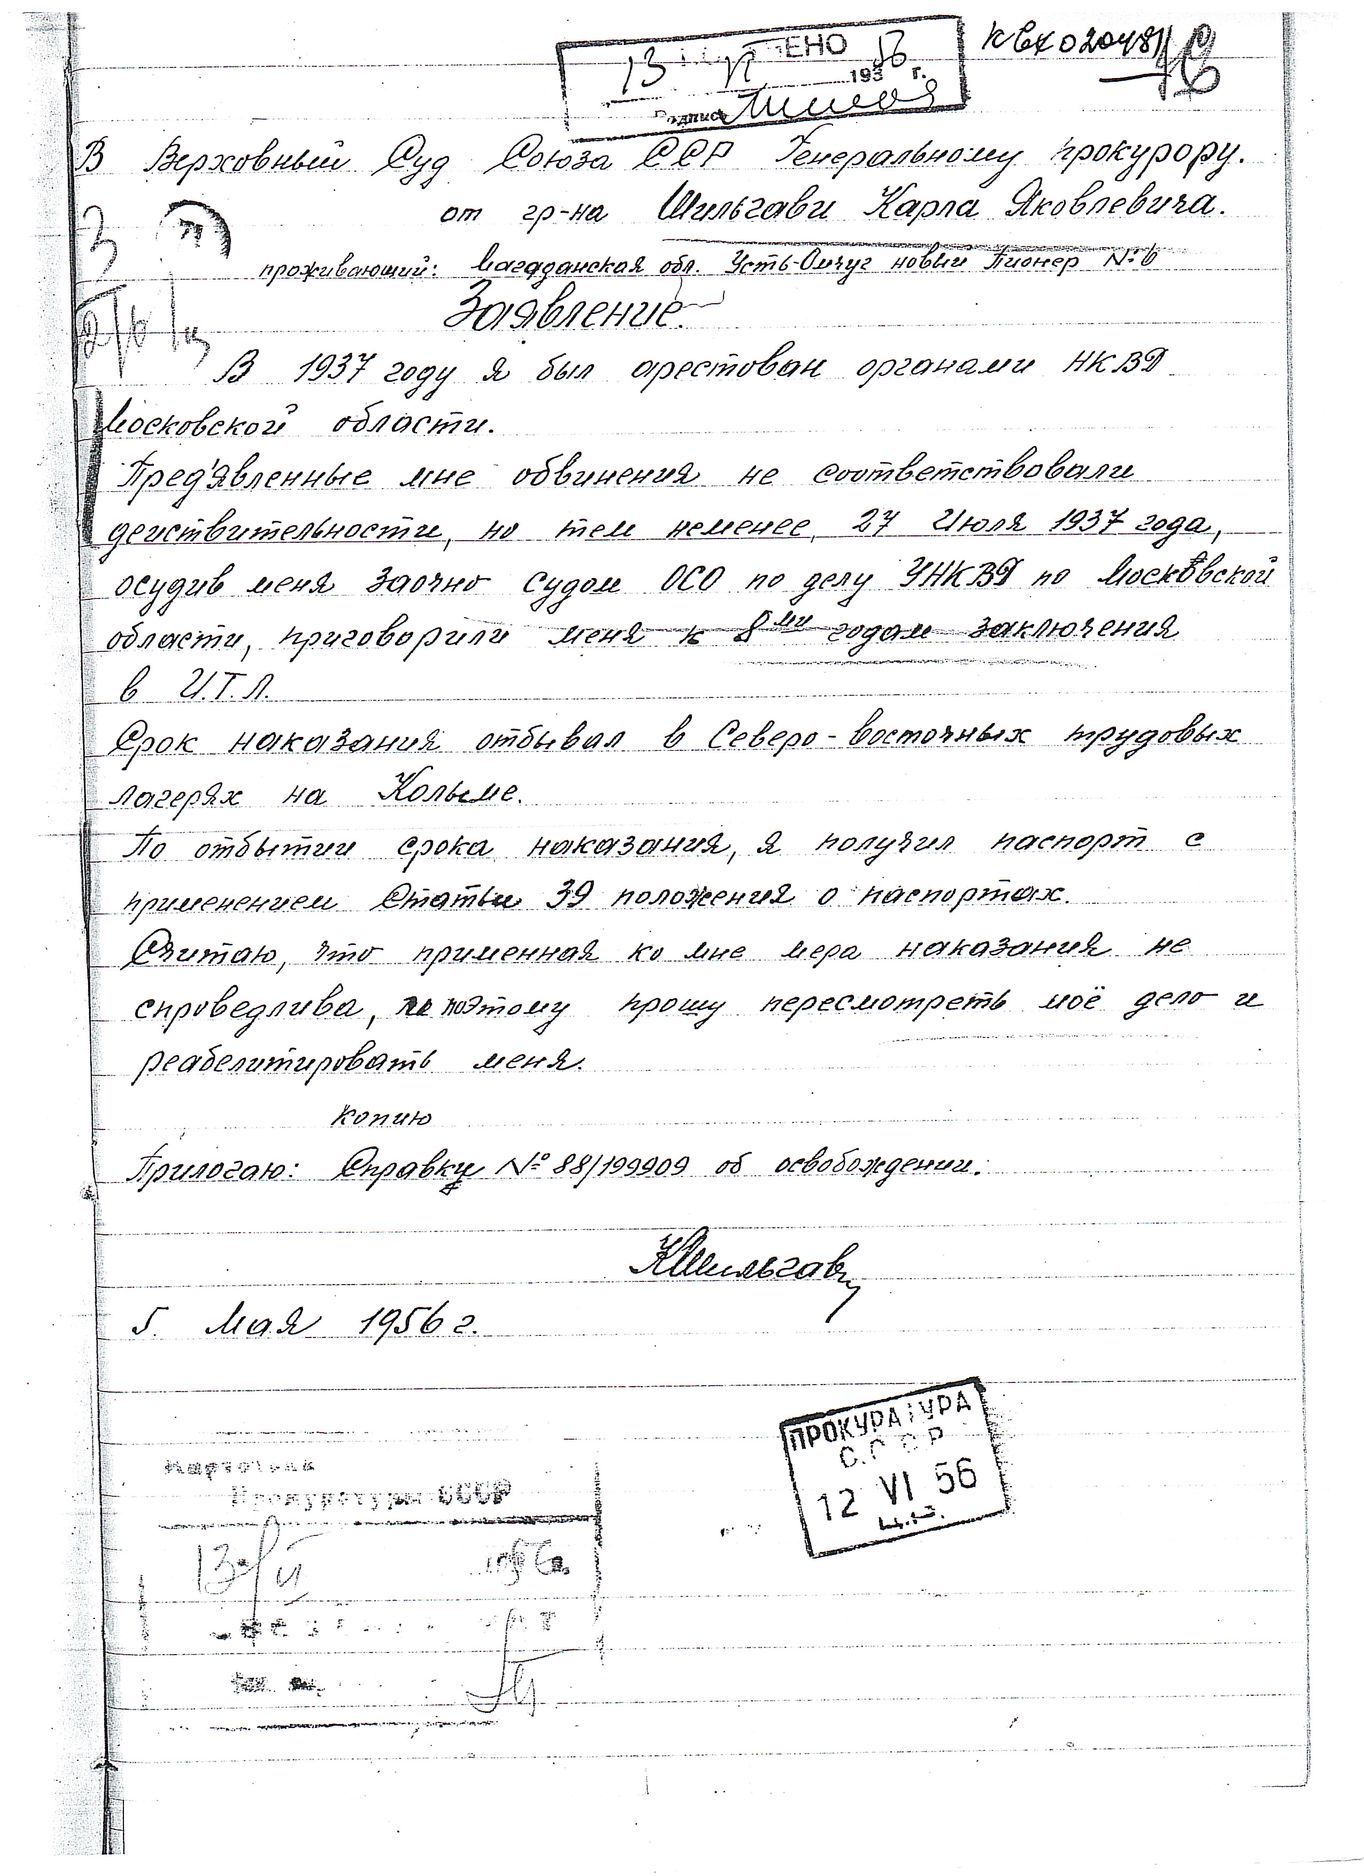 13 VI 1956 г.
Подпись
В Верховный Суд Союза ССР Генеральному прокурору.
от гр-на Шильгави Карла Яковлевича.
проживающий: Магаданская обл. Усть-Омчуг новый Пионер № 6
Заявление.
В 1937 году я был арестован органами НКВД
Московской области.
Пред'явленные мне обвинения не соответствовали
действительности, но тем неменее, 27 Июля 1937 года,
осудив меня заочно судом ОСО по делу УНКВД по Московской
области, приговорили меня к 8ми годам заключения
в И.Т.Л.
Срок наказания отбывал в Северо-восточных трудовых
лагерях на Колыме.
По отбытии срока наказания, я получил паспорт с
применением Статьи 39 положения о паспортах.
Считаю, что применная ко мне мера наказания не
спроведлива, поэтому прошу пересмотреть моё дело и
реабелитировать меня.
копию
Прилогаю: Справку № 88/199909 об освобождении.
КШильгави
5. Мая 1956 г.
ПРОКУРАТУРА
С.С.С.Р
12 VI 56
Картотека
Прокуратуры СССР
13/VI 1956г.